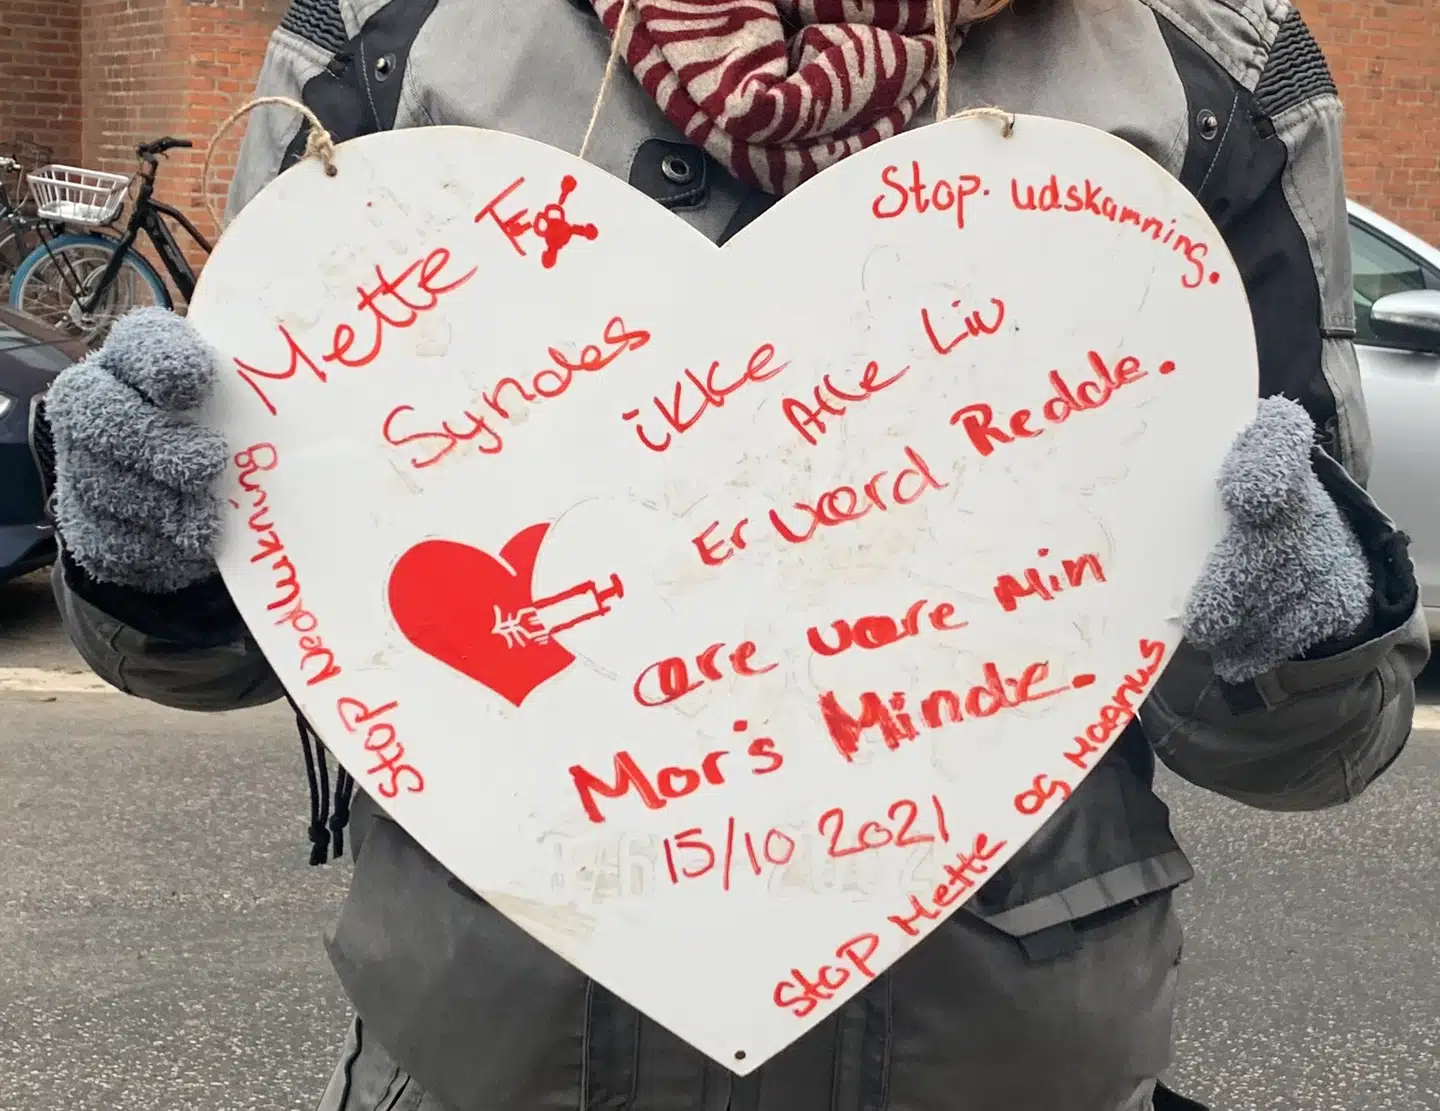 Mette F
Stop. udskamning.
Syndes ikke Alle Liv
Er værd Redde.
ære være min
Mor's Minde.
15/10 2021
Stop Nedlukning
Stop Mette og Magnus